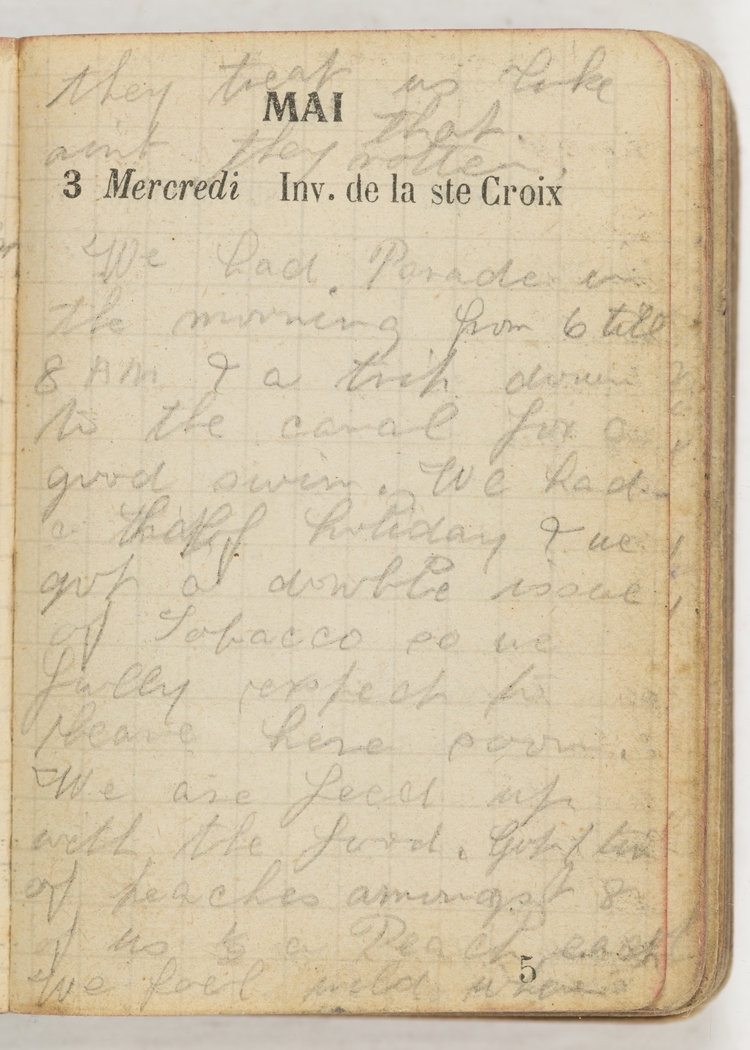 they treat us like
MAI
that.
aint they rotten.
3 Mercredi Inv. de la ste Croix
We had Parade in
the morning from 6 till
8 AM & a trip down
to the canal for a
good swim. We had
a half holiday & we
got a dowble issue
of Tobacco so we
fully expect to
leave here soon.
We are feed up
with the food. Got 1 tin
of peaches amongst 8
of us ½ a Peach each
We feel wild when
5